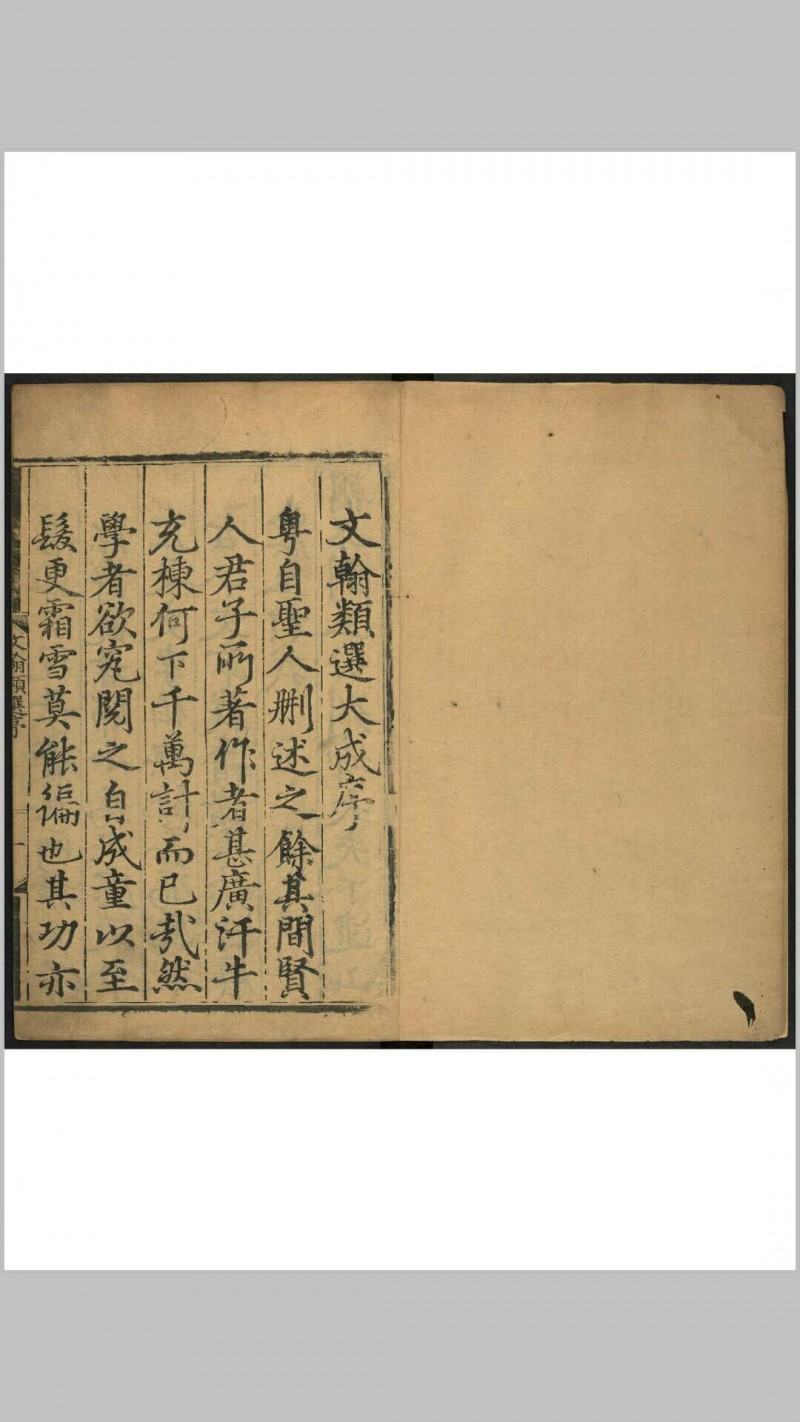 文翰類選大成序
粵自聖人刪述之餘其間賢
人君子所著作者甚廣汗牛
充棟何下千萬計而已哉然
學者欲究閱之自成童以至
髮更霜雪莫能徧也其功亦
文翰類選序